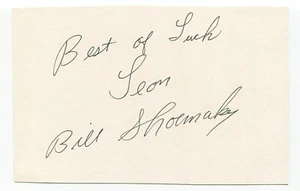 Best of Luck
Leon
Bill Shoemaker